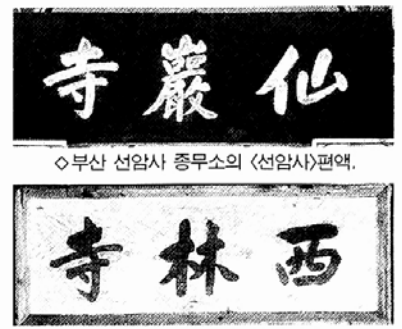 仙巖寺
◇부산 선암사 종무소의 〈선암사〉편액.
西林寺